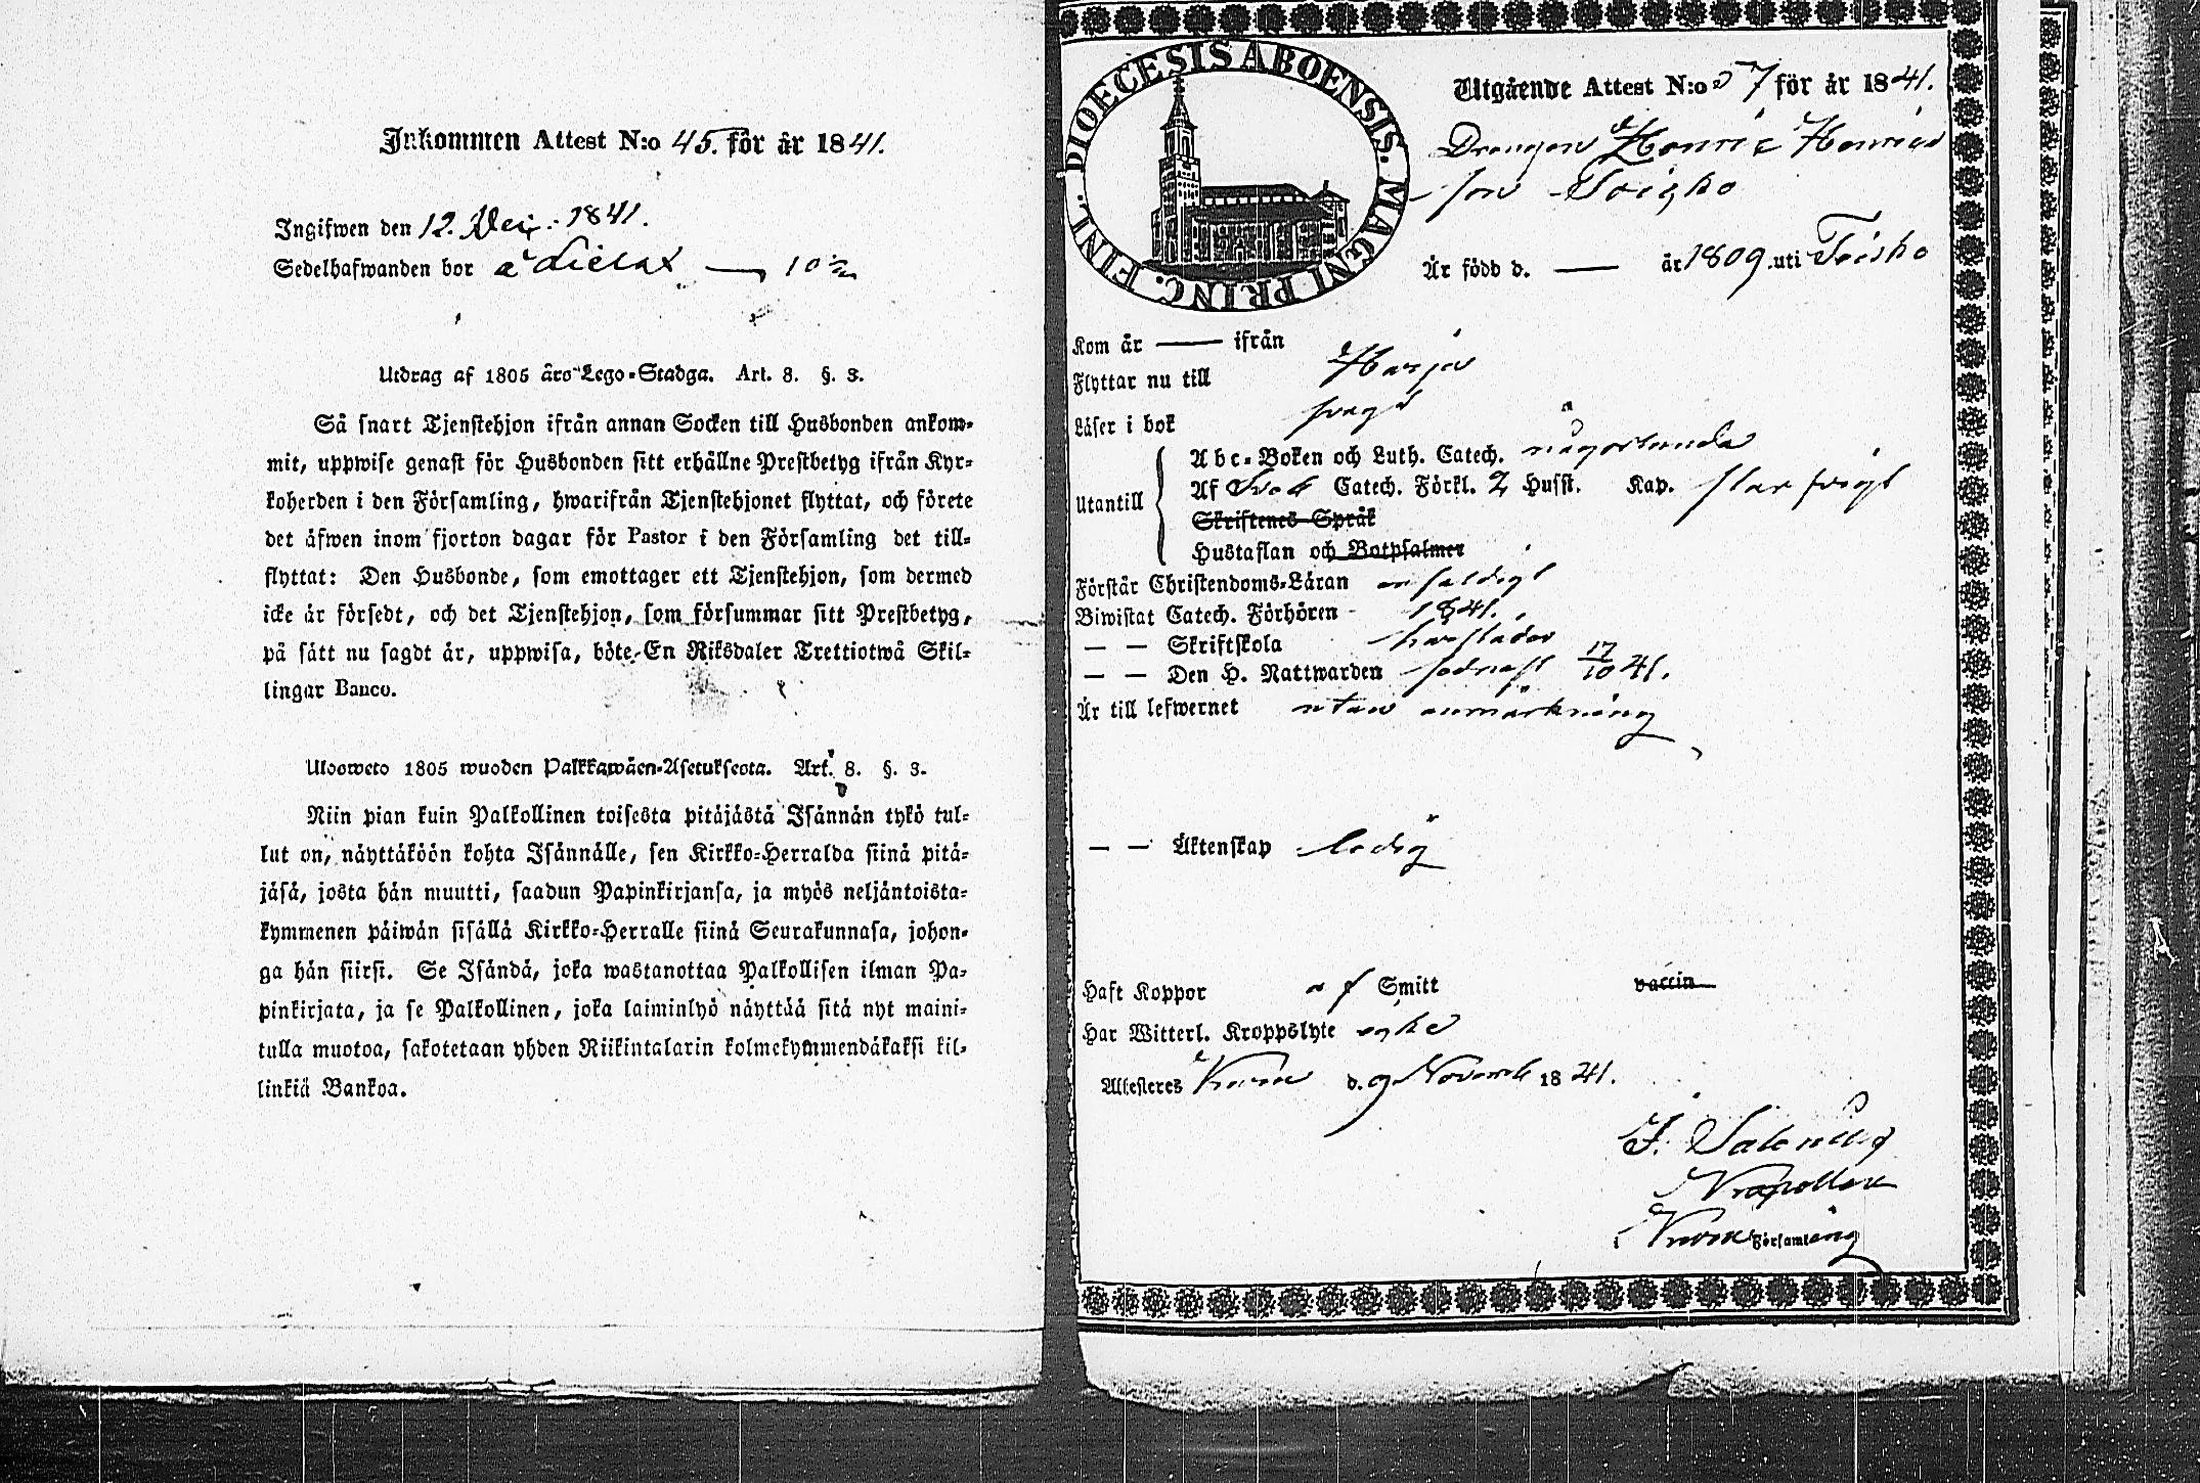 Inkommen Attest N:o 45. för år 1841.
Ingifwen den 12. 1841.
Sedelhafwanden bor å
Utdrag af 1805 års Lego-Stadga. Art. 8. §. 3.
Så snart Tjenstehjon ifrån annan Socken till Husbonden ankom-
mit, uppwise genast för Husbonden sitt erhållne Prestbetyg ifrån Kyr-
koherden i den Församling, hwarifrån Tjenstehjonet flyttat, och förete
det äfwen inom fjorton dagar för Pastor i den Församling det till-
flyttat: Den Husbonde, som emottager ett Tjenstehjon, som dermed
icke är försedt, och det Tjenstehjon, som försummar sitt Prestbetyg,
på sätt nu sagdt är, uppwisa, böte En Riksdaler Trettiotwå Skil-
lingar Banco.
Ulosweto 1805 wuoden Palkkawäen-Asetuksesta. Art. 8. §. 3.
Niin pian kuin Palkollinen toisesta pitäjästä Isännän tykö tul-
lut on, näyttäköön kohta Isännälle, sen Kirkko-Herralda siinä pitä-
jäsä, josta hän muutti, saadun Papinkirjansa, ja myös neljäntoista-
kymmenen päiwän sisällä Kirkko-Herralle siinä Seurakunnasa, johon-
ga hän siirsi. Se Isändä, joka wastanottaa Palkollisen ilman Pa-
pinkirjata, ja se Palkollinen, joka laiminlyö näyttää sitä nyt maini-
tulla muotoa, sakotetaan yhden Riikintalarin kolmekymmendäkaksi kil-
linkiä Bankoa.
DIOECESIS ABOENSIS. MAGNI PRINC. FINL.
Utgående Attest N:o 57 för år 1841.
Drengen Henric Henrics
son
Är född d. — år 1809 uti
Kom år — ifrån
Flyttar nu till
Läser i bok svagt
Abc-Boken och Luth. Catech. någorlunda
Utantill
Af Sveb Catech. Förkl. 2 Husst. Kap.
Skriftenes Språk
Hustaflan och Botpsalmer
Förstår Christendoms-Läran enfaldigt
Biwistat Catech. Förhören 1841.
— — Skriftskola
— — Den H. Nattwarden sednast 17/10 41.
Är till lefwernet utan anmärkning
— — Äktenskap ledig
Haft Koppor af Smitt vaccin
Har Witterl. Kroppslyte
Attesteres d. 9 Novemb 1841.
i Församling